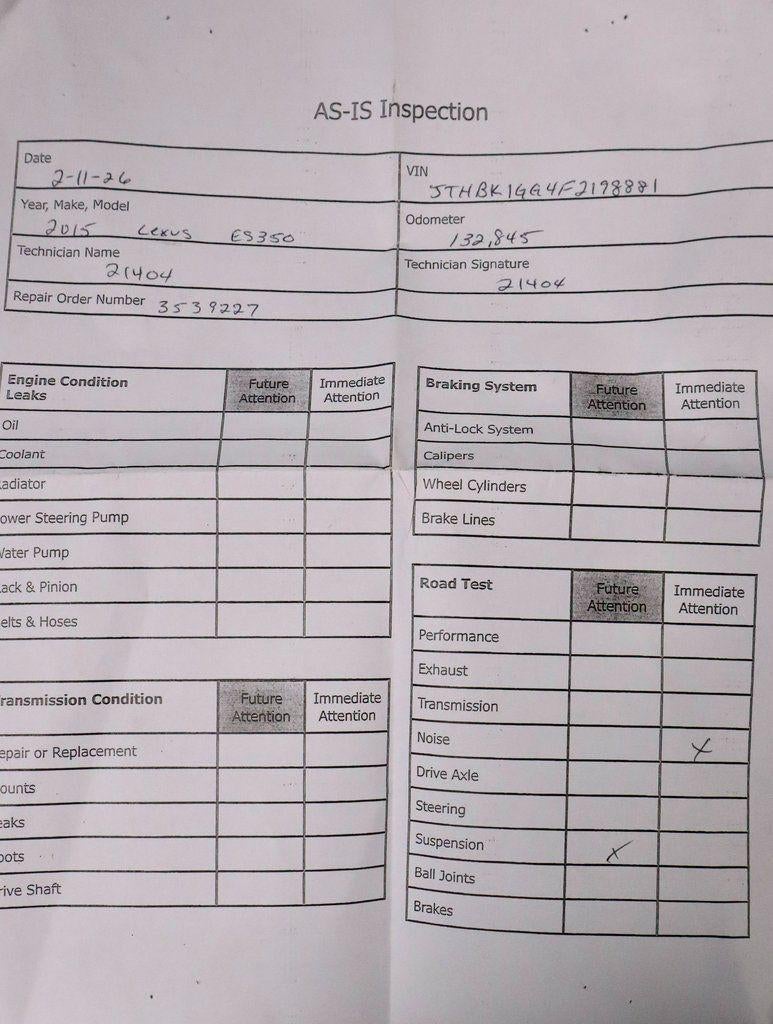 AS-IS Inspection
Date
2-11-26
VIN
JTHBK1GG4F2198881
Year, Make, Model
2015 Lexus ES350
Odometer
132,845
Technician Name
21404
Technician Signature
21404
Repair Order Number 3539227
Engine Condition
Leaks
Future Attention
Immediate Attention
Oil
Coolant
adiator
ower Steering Pump
Water Pump
ack & Pinion
elts & Hoses
ransmission Condition
Future Attention
Immediate Attention
epair or Replacement
ounts
eaks
oots
rive Shaft
Braking System
Future Attention
Immediate Attention
Anti-Lock System
Calipers
Wheel Cylinders
Brake Lines
Road Test
Future Attention
Immediate Attention
Performance
Exhaust
Transmission
Noise X
Drive Axle
Steering
Suspension X
Ball Joints
Brakes